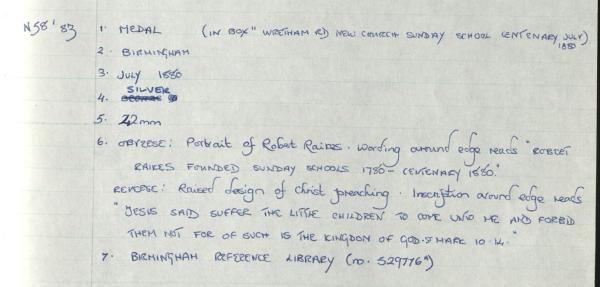 N58'83 1. MEDAL (IN BOX "WRETHAM RD NEW CHURCH SUNDAY SCHOOL CENTENARY JULY 1880)
2. BIRMINGHAM
3. JULY 1880
SILVER
4.
5. 42mm
6. OBVERSE: Portrait of Robert Raikes. Wording around edge reads "ROBERT
RAIKES FOUNDED SUNDAY SCHOOLS 1780 - CENTENARY 1880."
REVERSE: Raised design of Christ preaching. Inscription around edge reads
"JESUS SAID SUFFER THE LITTLE CHILDREN TO COME UNTO ME AND FORBID
THEM NOT FOR OF SUCH IS THE KINGDOM OF GOD. S MARK 10.14."
7. BIRMINGHAM REFERENCE LIBRARY (no. 529776")